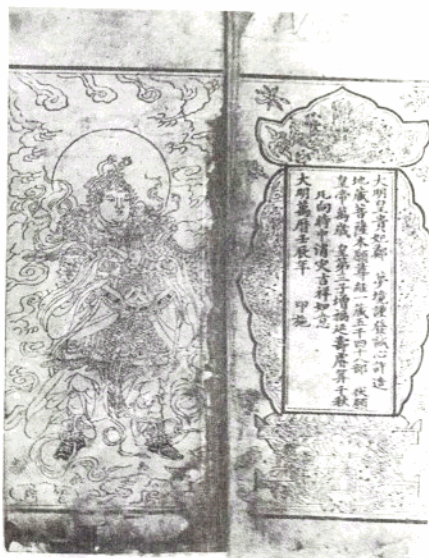 大明皇貴妃鄭 夢境謹發誠心許造
地藏菩薩本願尊經一藏五千四十部 伏願
皇帝萬歲 皇第三子增福延壽曆算千秋
凡向時中消灾吉祥如意
大明萬曆壬辰年 印施